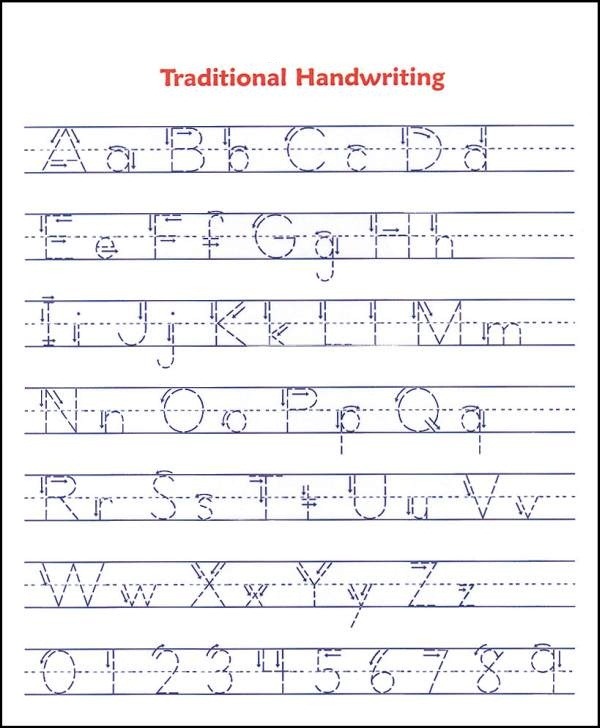 Traditional Handwriting
A a B b C c D d
E e F f G g H h
I i J j K k L l M m
N n O o P p Q q
R r S s T t U u V v
W w X x Y y Z z
0 1 2 3 4 5 6 7 8 9